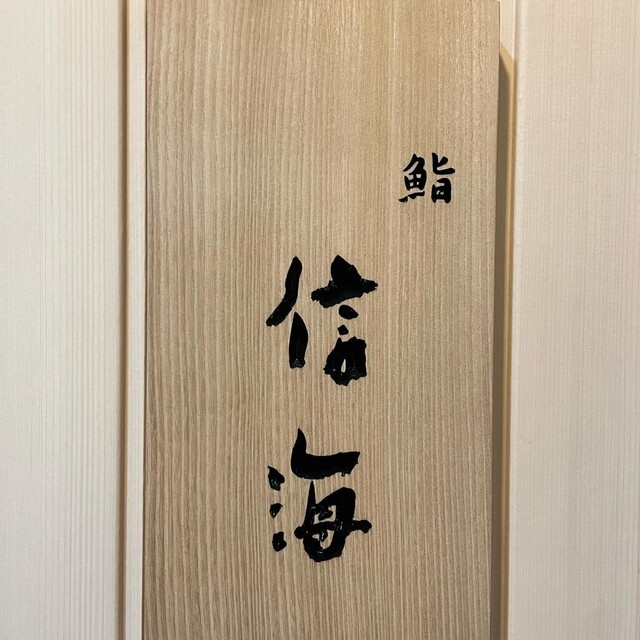 鮨
信海